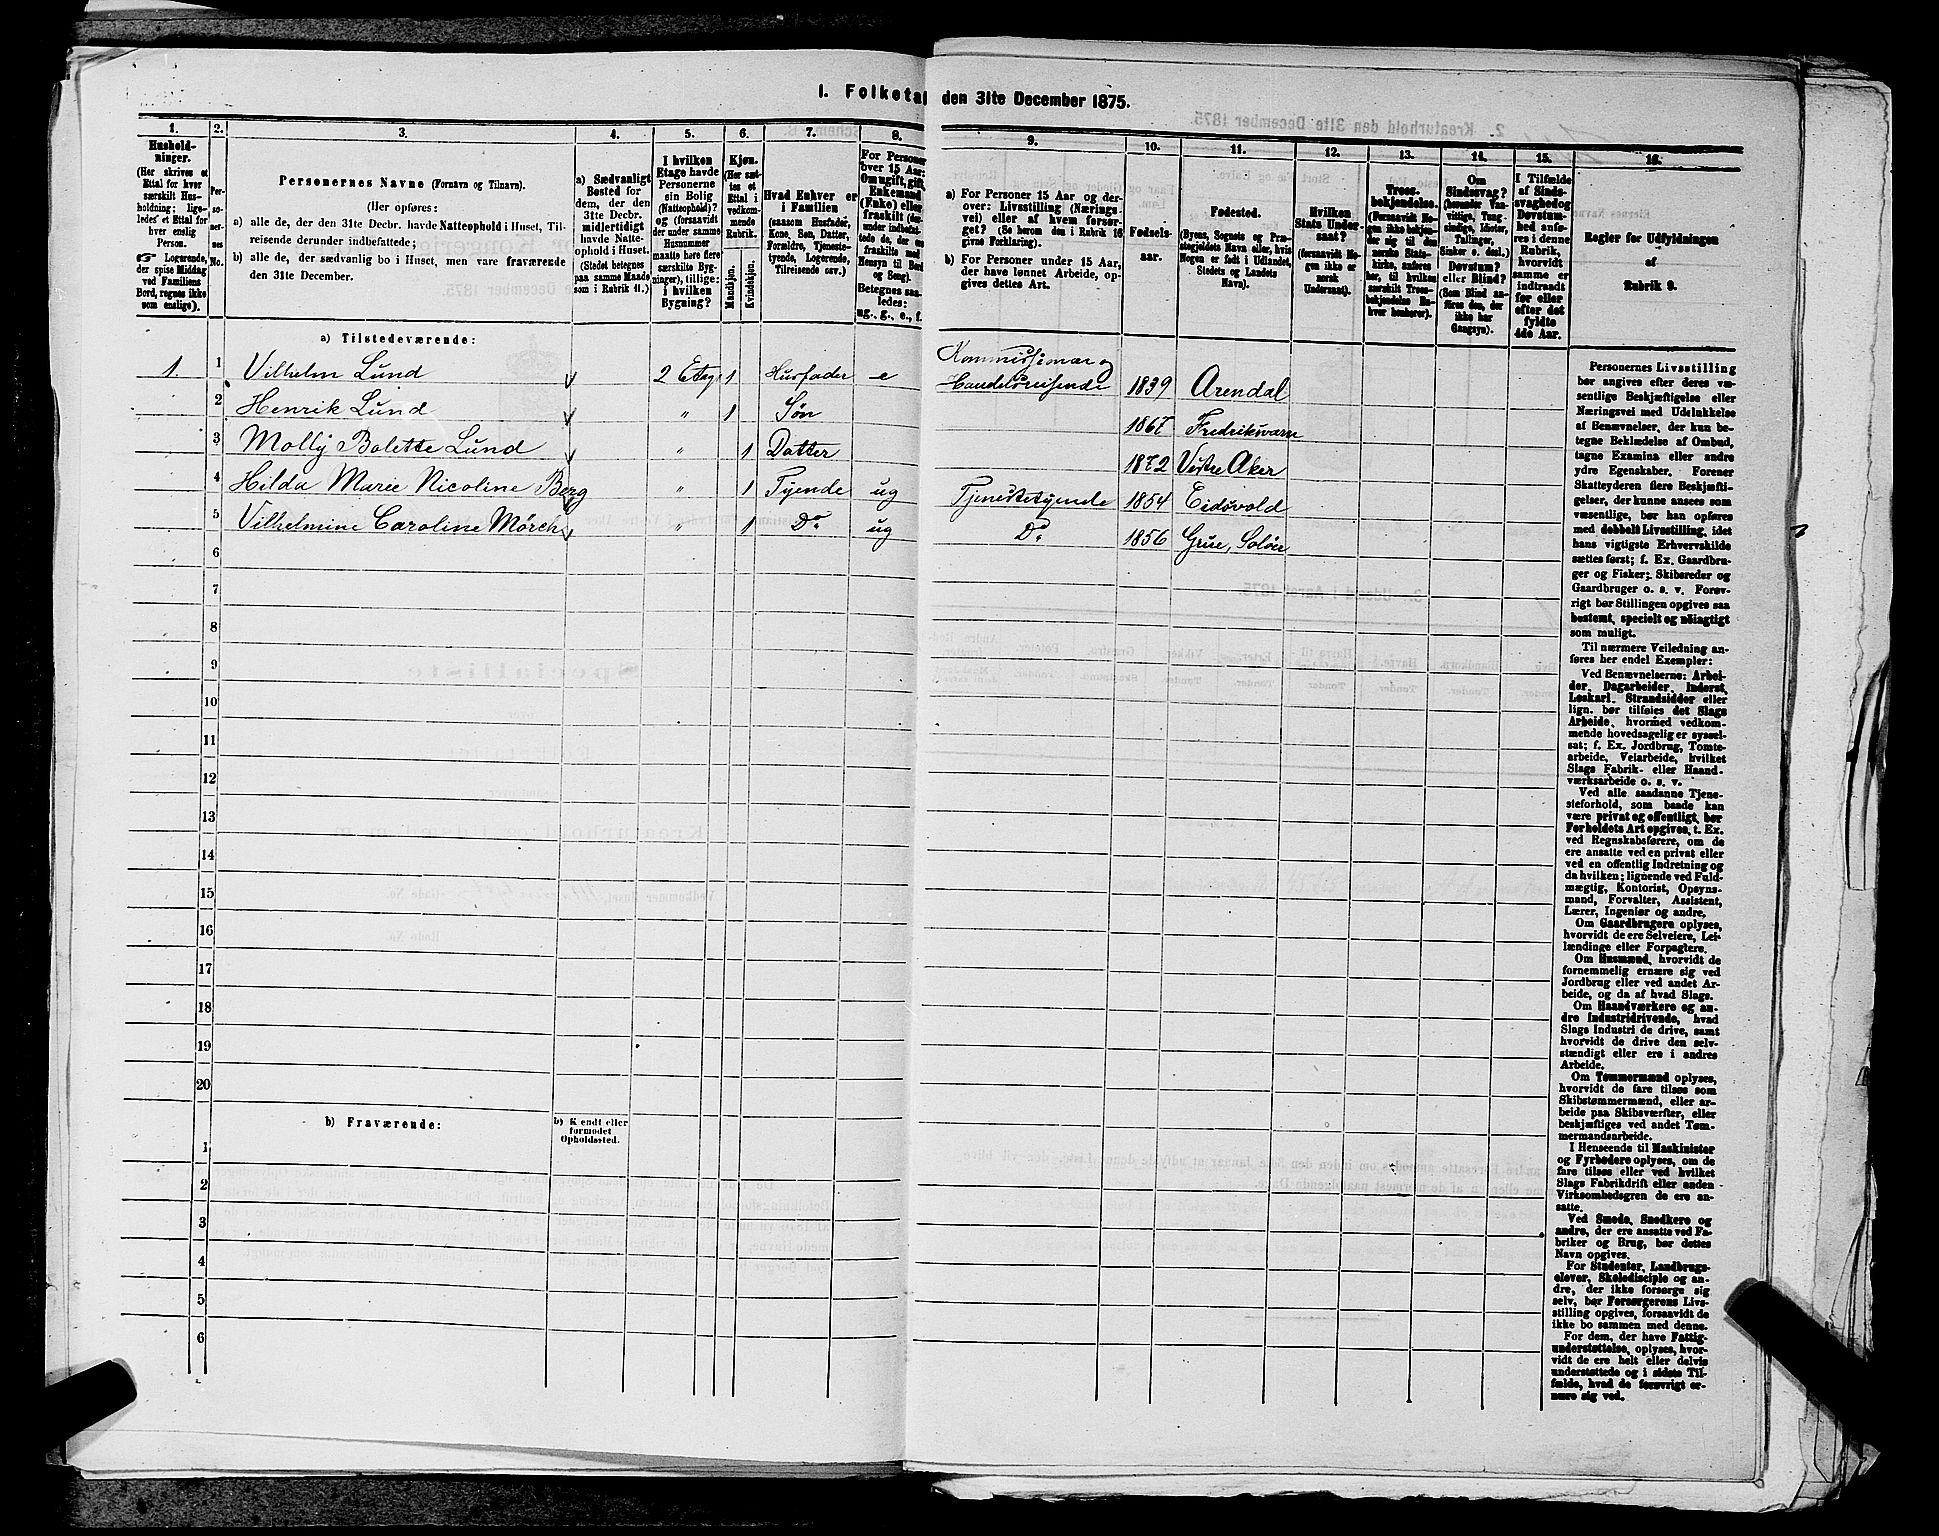 I. Folketal den 31te December 1875.
1. 2. 3. 4. 5. 6. 7. 8. 9. 10. 11. 12. 13. 14. 15. 16.
Hushold-
ninger.
(Her skrives et
Ettal for hver
særskilt Hus-
holdning; lige-
ledes et Ettal for
hver enslig
Person.
☞ Logerende,
der spise Middag
ved Familiens
Bord, regnes ikke
som enslige).
Per-
so-
ner-
nes
No.
Personernes Navne (Fornavn og Tilnavn).
(Her opføres:
a) alle de, der den 31te Decbr. havde Natteophold i Huset, Til-
reisende derunder indbefattede;
b) alle de, der sædvanlig bo i Huset, men vare fraværende
den 31te December.
a) Sædvanligt
Bosted for
dem, der den
31te Decbr.
midlertidigt
havde Natte-
ophold i Huset.
(Stedet betegnes
paa samme Maade
som i Rubrik 11.)
I hvilken
Etage havde
Personerne
sin Bolig
(Natteophold)?
og (forsaavidt
der under samme
Husnummer
maatte høre flere
særskilte Byg-
ninger), tillige:
i hvilken
Bygning?
Kjøn.
(Her sæt-
tes et
Ettal i
vedkom-
mende
Rubrik.
Mandkjøn.
Kvindekjøn.
Hvad Enhver er
i Familien
(saasom Husfader,
Kone, Søn, Datter,
Forældre, Tjeneste-
tyende, Logerende,
Tilreisende osv.)
For Personer
over 15 Aar:
Om ugift, gift,
Enkemand
(Enke) eller
fraskilt (der-
under indbefat-
tede de, der ere
fraskilte med
Hensyn til Bord
og Seng).
Betegnes saa-
ledes:
ug., g., e., f.
a) For Personer 15 Aar og der-
over: Livsstilling (Nærings-
vei) eller af hvem forsør-
get? (Se herom den i Rubrik 16
givne Forklaring).
b) For Personer under 15 Aar,
der have lønnet Arbeide, op-
gives dettes Art.
Fødsels-
aar.
Fødested.
(Byens, Sognets og Præ-
stegjeldets Navn eller, hvis
Nogen er født i Udlandet,
Stedets og Landets
Navn).
Hvilken
Stats Under-
saat?
(forsaavidt No-
gen ikke er
norsk
Undersaat).
Troes-
bekjendelse.
(Forsaavidt No-
gen ikke bekjen-
der sig til den
norske Stats-
kirke, anføres
her, til hvilken
særskilt Troes-
bekjendelse En-
hver henhører).
Om
Sindssvag?
(herunder Van-
vittige, Tung-
sindige, Idioter,
Tullinger,
Sinker o. desl.)
Døvstum?
eller Blind?
(Som Blind an-
føres den, der
ikke har
Gangsyn).
I Tilfælde
af Sinds-
svaghed og
Døvstum-
hed anfø-
res i denne
Rubrik,
hvorvidt
samme er
indtraadt
før eller
efter det
fyldte
4de Aar.
Regler for Udfyldningen
af
Rubrik 9.
a) Tilstedeværende:
1. 1 Vilhelm Lund 2 Etage 1 Husfader e Kommissionær og
Handelsreisende 1839 Arendal
2 Henrik Lund " 1 Søn 1867 Fredriksværn
3 Molly Bolette Lund " 1 Datter 1872 Vestre Aker
4 Hilda Marie Nicoline Berg " 1 Tyende ug Tjenestetyende 1854 Eidsvold
5 Vilhelmine Caroline Mörch " 1 Do ug Do 1856 Grue, Solör
6
7
8
9
10
11
12
13
14
15
16
17
18
19
20
b) Fraværende:
b) Kjendt eller
formodet
Opholdssted.
1
2
3
4
5
6
Personernes Livsstilling
bør angives efter deres væ-
sentlige Beskjæftigelse eller
Næringsvei med Udelukkelse
af Benævnelser, der kun be-
tegne Beklædelse af Ombud,
tagne Examina eller andre
ydre Egenskaber. Forener
Skatteyderen flere Beskjæfti-
gelser, der kunne ansees som
væsentlige, bør han opføres
med dobbelt Livsstilling, idet
hans vigtigste Erhvervskilde
sættes først; f. Ex. Gaardbru-
ger og Fisker; Skibsreder og
Gaardbruger o. s. v. Forøv-
rigt bør Stillingen opgives saa
bestemt, specielt og nøiagtigt
som muligt.
Til nærmere Veiledning an-
føres her endel Exempler:
Ved Benævnelserne: Arbei-
der, Dagarbeider, Inderst,
Løskarl, Strandsidder eller
lign. bør tilføies det Slags
Arbeide, hvormed vedkom-
mende hovedsagelig er syssel-
sat; f. Ex. Jordbrug, Tomte-
arbeide, Veiarbeide, hvilket
Slags Fabrik- eller Haand-
værksarbeide o. s. v.
Ved alle saadanne Tjene-
steforhold, som baade kan
være privat og offentligt, bør
Forholdets Art opgives, t. Ex.
ved Regnskabsførere, om de
ere ansatte ved en privat eller
ved en offentlig Indretning og
da hvilken; lignende ved Fuld-
mægtig, Kontorist, Opsyns-
mand, Forvalter, Assistent,
Lærer, Ingeniør og andre.
Om Gaardbrugere oplyses,
hvorvidt de ere Selveiere, Lei-
lændinge eller Forpagtere.
Om Husmænd, hvorvidt de
fornemmelig ernære sig ved
Jordbrug eller ved andet Ar-
beide, og da af hvad Slags.
Om Haandværkere og an-
dre Industridrivende, hvad
Slags Industri de drive, samt
hvorvidt de drive den selv-
stændigt eller ere i andres
Arbeide.
Om Tømmermænd oplyses,
hvorvidt de fare tilsøs som
Skibstømmermænd, eller ar-
beide paa Skibsværfter, eller
beskjæftiges ved andet Tøm-
mermandsarbeide.
I Henseende til Maskinister
og Fyrbødere oplyses, om de
fare tilsøs eller ved hvilket
Slags Fabrikdrift eller anden
Virksomhedsgren de ere an-
satte.
Ved Smede, Snedkere og
andre, der ere ansatte ved Fa-
briker og Brug, bør dettes
Navn opgives.
For Studenter, Landbrugs-
elever, Skoledisciple og an-
dre, der ikke forsørge sig
selv, bør Forsørgerens Livs-
stilling opgives, forsaavidt de
ikke bo sammen med denne.
For dem, der have Fattig-
understøttelse, oplyses, hvor-
vidt de ere helt eller delvis
understøttede og i sidste Til-
fælde, hvad de forøvrigt er-
nære sig ved.